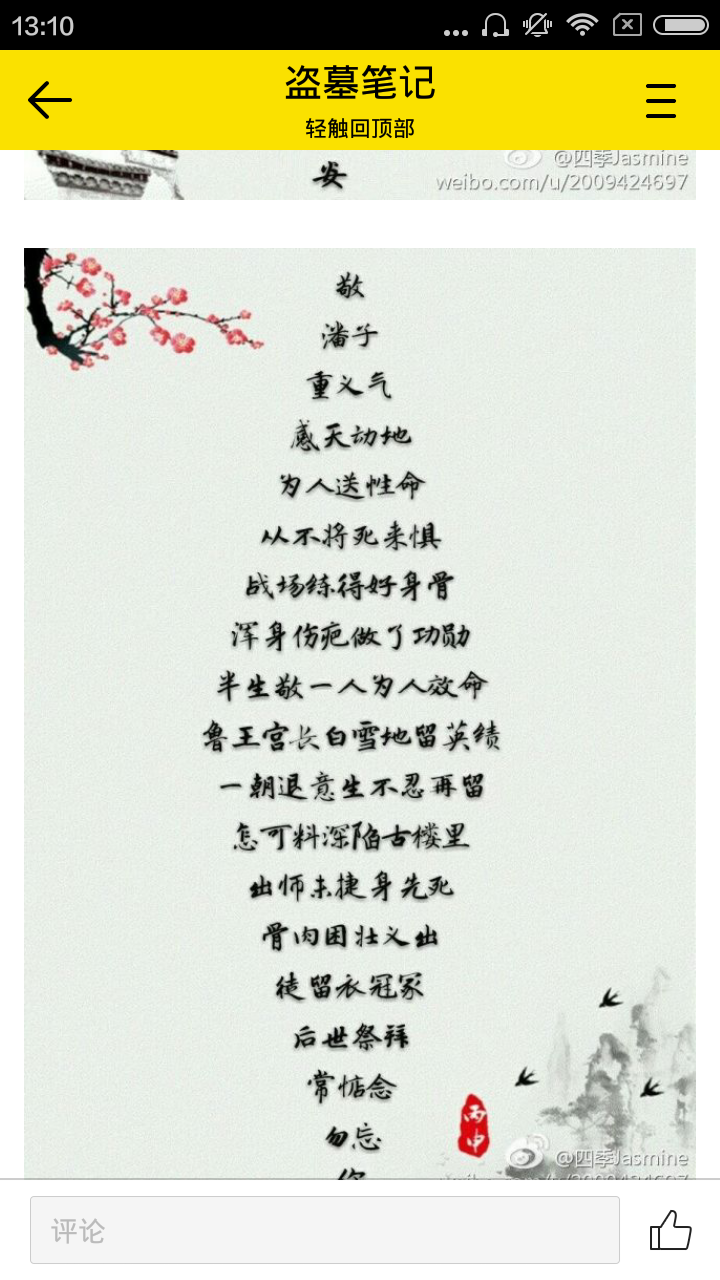 13:10
盗墓笔记
轻触回顶部
安
@四季Jasmine
weibo.com/u/2009424697
敬
潘子
重义气
感天动地
为人送性命
从不将死来惧
战场练得好身骨
浑身伤疤做了功勋
半生敬一人为人效命
鲁王宫长白雪地留英绩
一朝退意生不忍再留
怎可料深陷古楼里
出师未捷身先死
骨肉困壮义出
徒留衣冠冢
后世祭拜
常惦念
勿忘
丙申
@四季Jasmine
评论